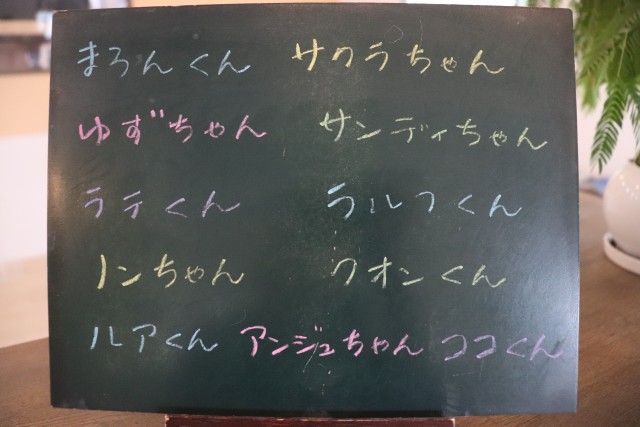 まろんくん サクラちゃん
ゆずちゃん サンディちゃん
ラテくん ラルフくん
ノンちゃん クオンくん
ルアくん アンジュちゃん ココくん